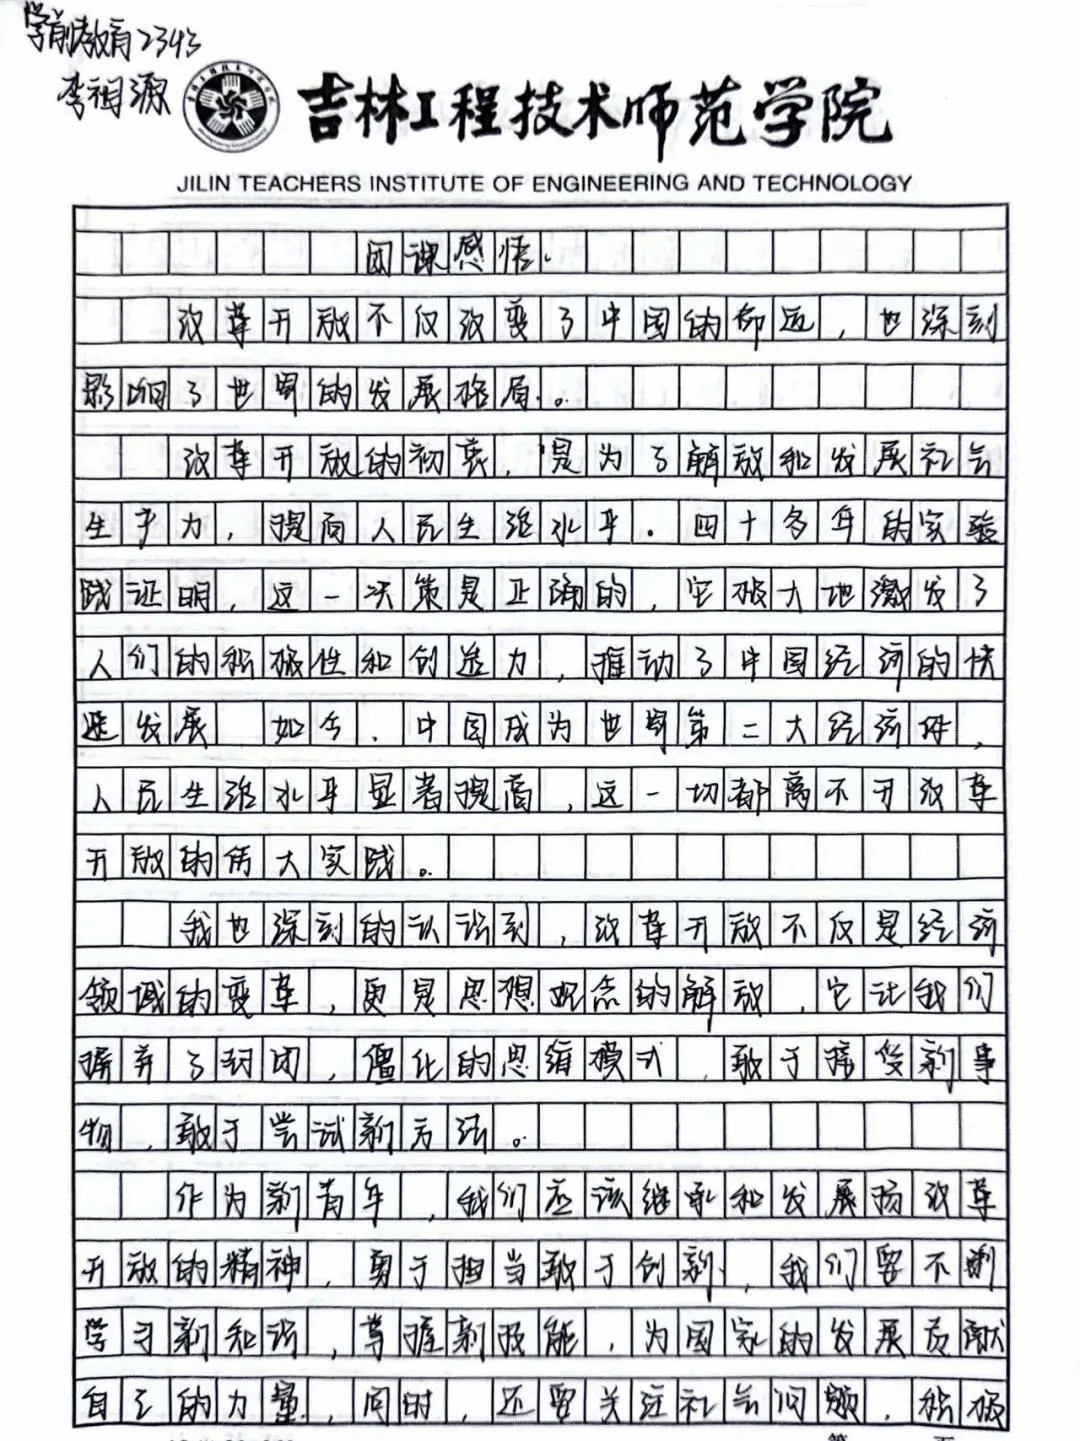 学前教育2343
李祖源
吉林工程技术师范学院
JILIN TEACHERS INSTITUTE OF ENGINEERING AND TECHNOLOGY
团课感悟.
改革开放不仅改变了中国的命运，也深刻
影响了世界的发展格局。
改革开放的初衷，是为了解放和发展社会
生产力，提高人民生活水平。四十多年的实验
践证明，这一决策是正确的，它极大地激发了
人们的积极性和创造力，推动了中国经济的快
速发展 如今，中国成为世界第二大经济体，
人民生活水平显著提高，这一切都离不开改革
开放的伟大实践。
我也深刻的认识到，改革开放不仅是经济
领域的变革，更是思想观念的解放，它让我们
摒弃了封闭，僵化的思维模式，敢于接受新事
物，敢于尝试新方法。
作为新青年，我们应该继承和发展扬改革
开放的精神，勇于担当敢于创新，我们要不断
学习新知识，掌握新技能，为国家的发展贡献
自己的力量，同时，还要关注社会问题，积极